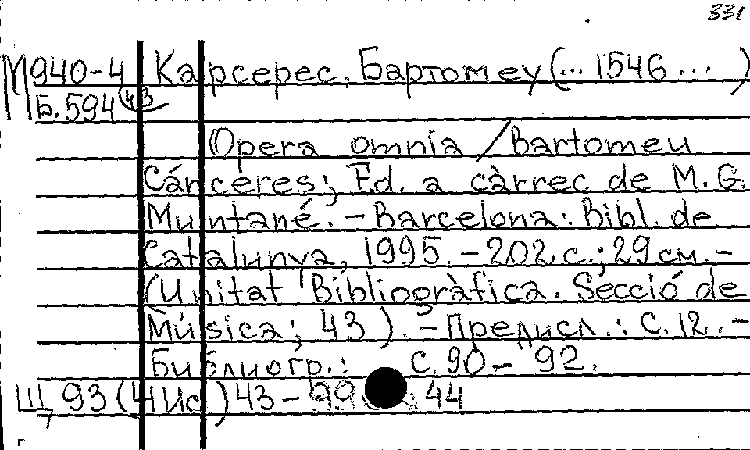 331
М940-4 Карсерес, Бартомеу (... 1546 ...)
Б.594 (43
Opera omnia / Bartomeu
Cárceres; Ed. a càrrec de M. G.
Muntané. – Barcelona: Bibl. de
Catalunya, 1995. – 202 с.; 29 см. –
(Unitat Bibliogràfica. Secció de
Música; 43). – Предисл.: с. 12. –
Библиогр.: С. 90 – 92.
Щ 93 (4Ис) 43 – 99 44